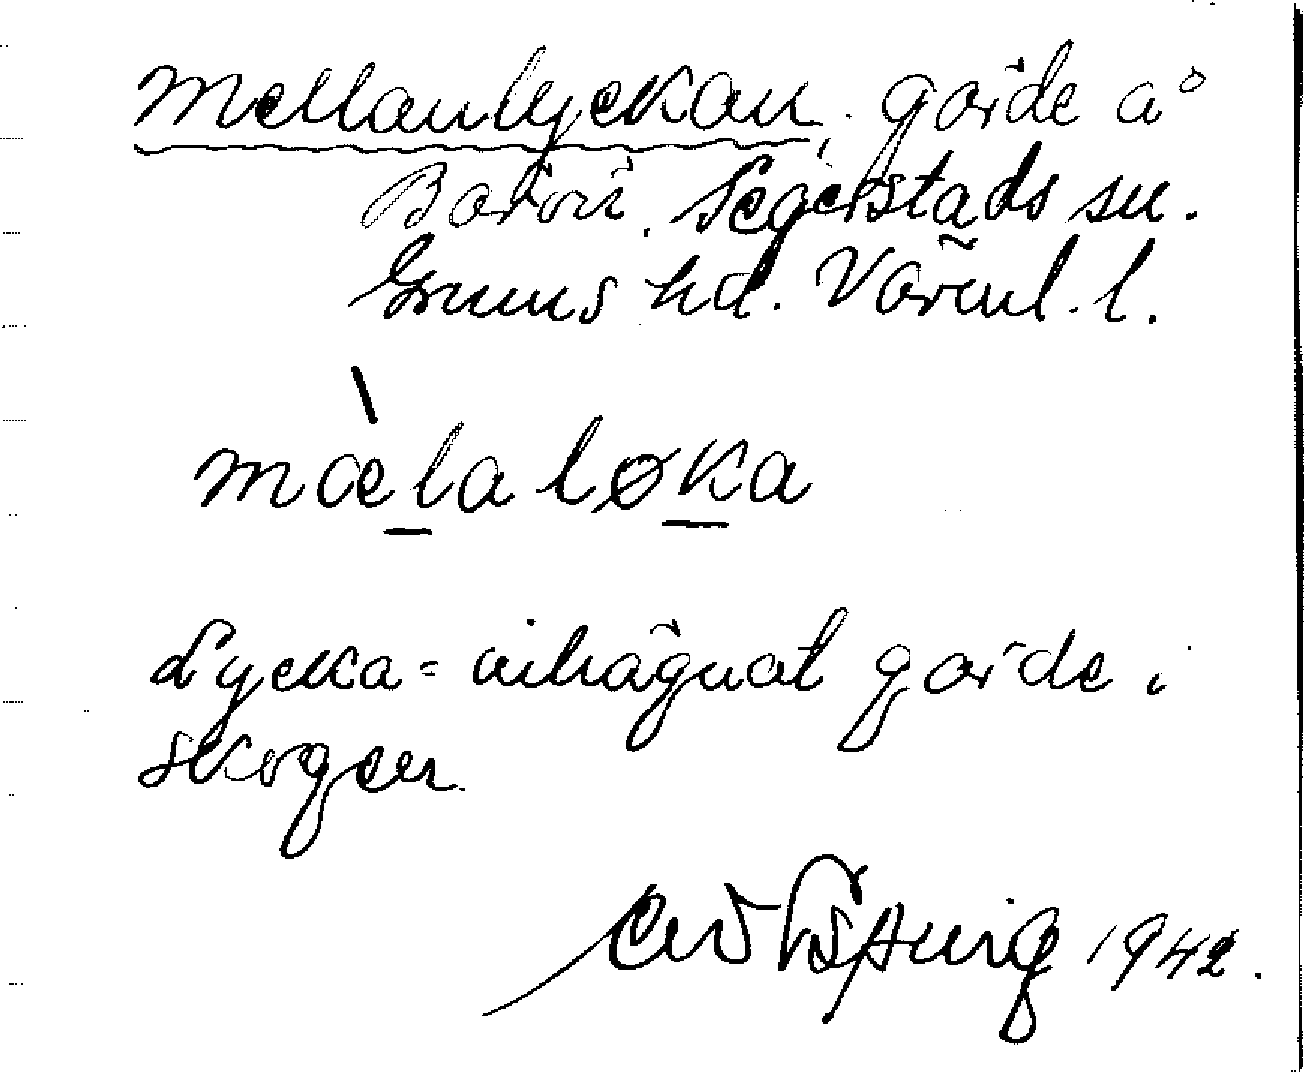 Mellanlyckan, gärde å
Segerstads sn.
Grums hd. Värml. l.
mælaløka
Lycka = inhägnat gärde i
skogen.
1942.